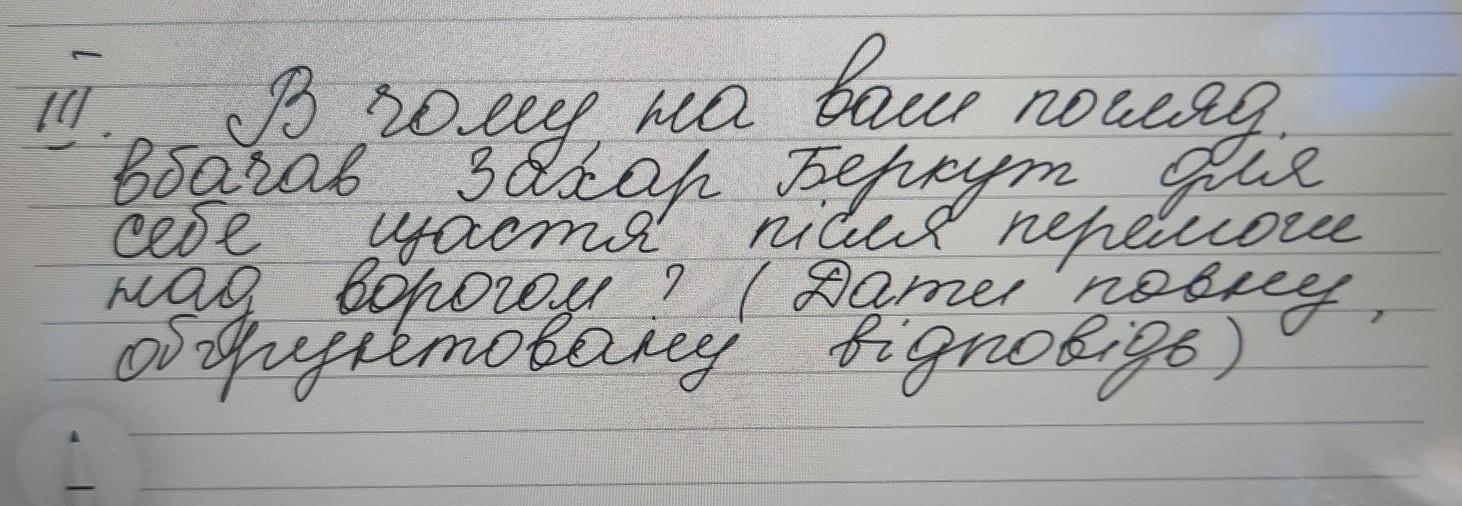 III. В чому, на ваш погляд,
вбачав Захар Беркут для
себе щастя після перемоги
над ворогом? (Дати повну,
обґрунтовану відповідь)